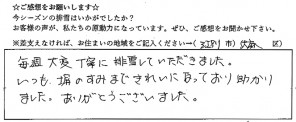 ☆ご感想をお願いします☆
今シーズンの排雪はいかがでしたか？
お客様の声が、私たちの原動力になっています。ぜひ、ご感想をお聞かせ下さい。
※差支えなければ、お住まいの地域をご記入ください→( 市) 区)
毎週大変丁寧に排雪していただきました。
いつも、塀のすみまできれいになっており助かり
ました。ありがとうございました。